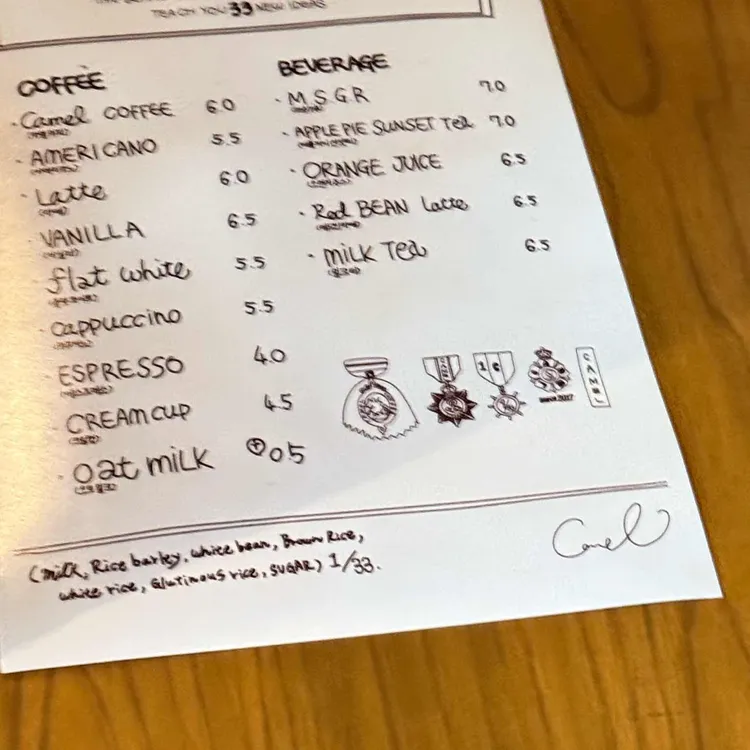 TEACH YOU 33 NEW IDEAS
COFFEE
Camel COFFEE 6.0
AMERICANO 5.5
Latte 6.0
VANILLA 6.5
flat white 5.5
cappuccino 5.5
ESPRESSO 4.0
CREAM CUP 4.5
oat milk + 0.5
BEVERAGE
M.S.G.R 7.0
APPLE PIE SUNSET Tea 7.0
ORANGE JUICE 6.5
Red BEAN Latte 6.5
milk Tea 6.5
16
since 2017
CAMEL
Camel
(milk, Rice barley, white bean, Brown Rice,
white rice, Glutinous rice, SUGAR) 1/33.